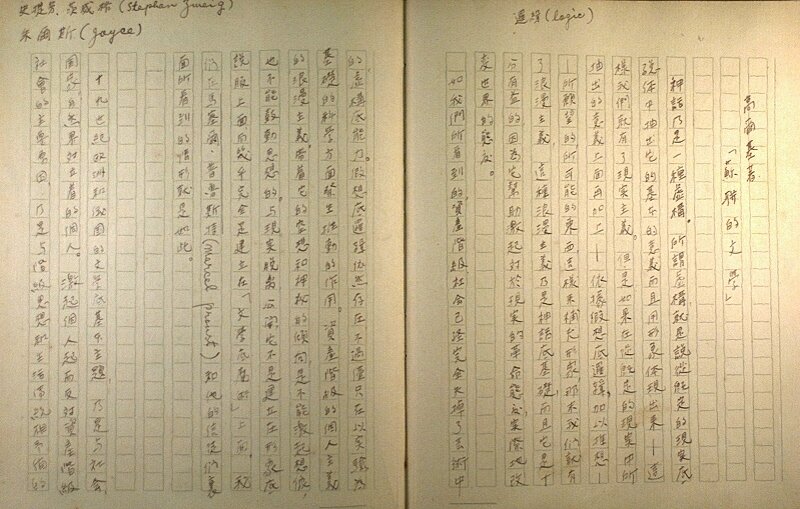 邏輯(logic)
高爾基著
「蘇聯的文學」
神話乃是一種虛構。所謂虛構就是說從旣定的現實底
總体中抽出它的基本的意義而且用形象体現出來——這
樣我們就有了現實主義。但是如果在從旣定的現實中所
抽出的意義上面再加上——依據假想底邏輯加以推想—
—所願望的所可能的東西,這樣來補充形象,那末我們就有
了浪漫主義。這種浪漫主義乃是神話底基礎,而且它是十
分有益的因為它幫助激起對於現實的革命態度,實際地改
變世界的態度。
一如我們所看到的,資產階級社会已經完全失掉了藝術中
史提芬.茨威格(Stephan Zweig)
朱爾斯(Joyce)
的虛構底能力。假想底邏輯依然存在不過僅只在以實驗為
基礎的科學方面發生推動的作用。資產階級的個人主義
的浪漫主義帶着它的空想和神秘的傾向,是不能激起想像,
也不能鼓動思想的。与現實脫离分開,它不是建立在形象底
說服上面而幾乎完全是建立在「文字底魔術」上面。我
們在馬塞爾·普魯斯德(Marcel Proust)和他的信徒們裏
面所看到的情形就是如此。
十九世紀的洲和俄國的文學底基本主題,乃是与社会、
國家、自然界对立着的個人。激起個人起而反对資產階級
社會的主要原因,乃是与階級思想和生活傳統相矛盾的